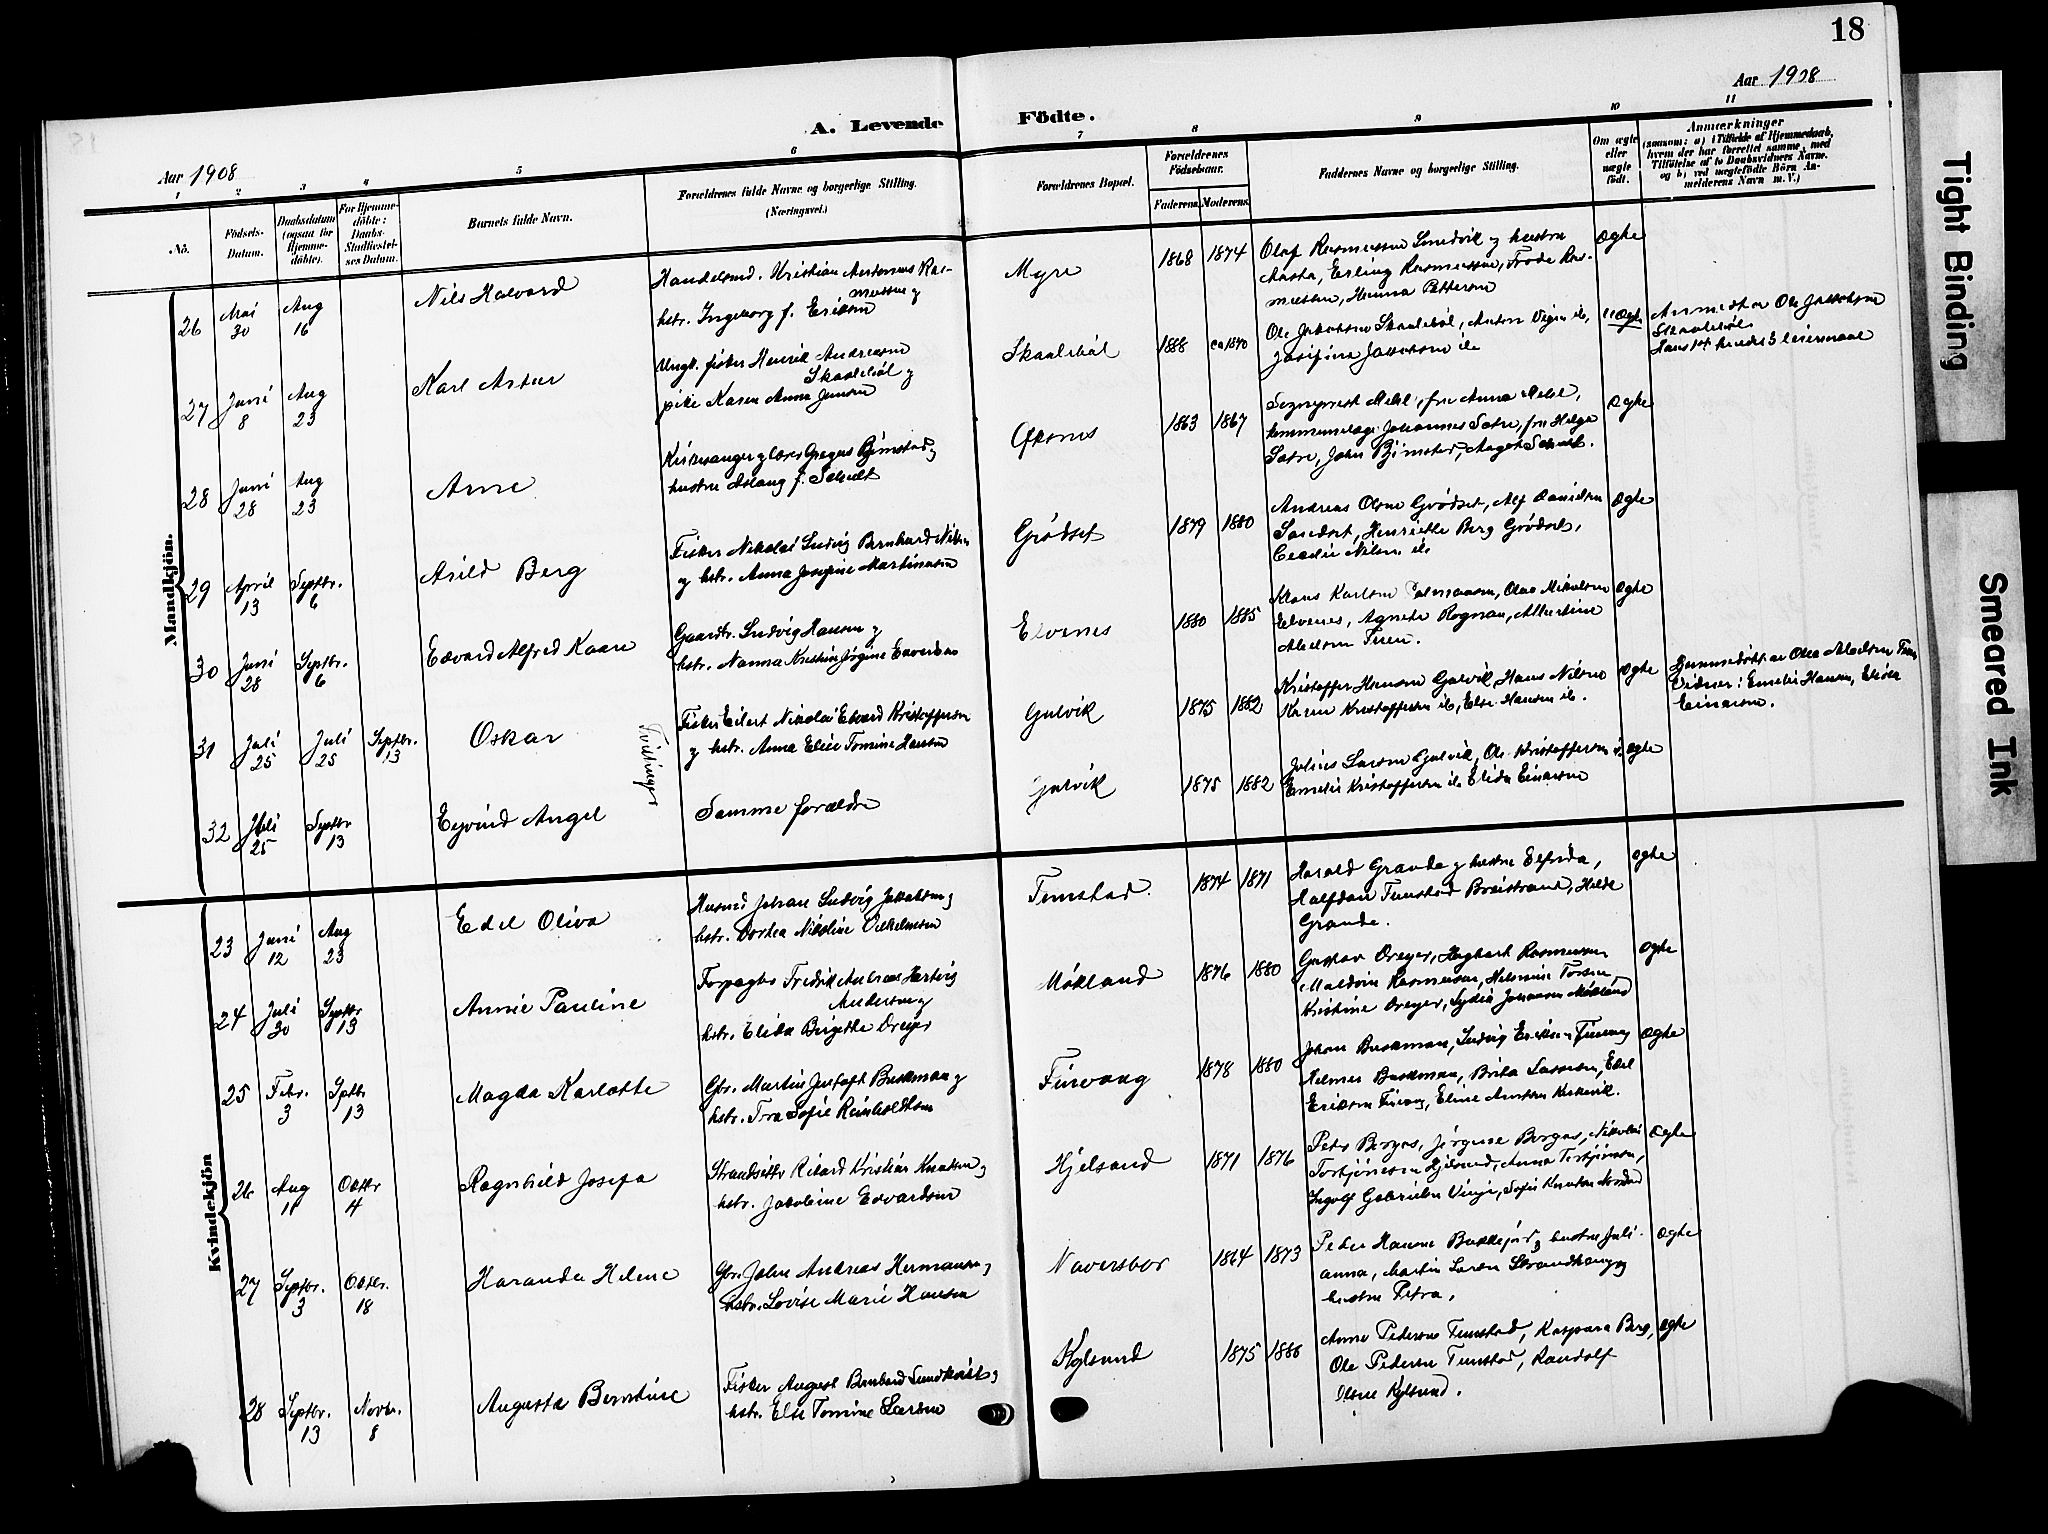 18
Aar 1908
A. Levende
Födte.
Aar 1908
1 2 3 4 5 6
7 8 9 10 11
Nö.
Födsels-
Datum.
Daabsdatum
(ogsaa for
Hjemme-
döbte).
For Hjemme-
döbte:
Daabs-
Stadfæstel-
ses Datum.
Barnets fulde Navn.
Forældrenes fulde Navne og borgerlige Stilling.
(Næringsvei.)
Forældrenes Bopæl.
Forældrenes
Födselsaar.
Faderens. Moderens.
Faddernes Navne og borgerlige Stilling.
Om ægte
eller
uægte
födt.
Anmærkninger
(saasom: a) i Tilfælde af Hjemmedaab,
hvem der har forrettet samme, med
Tilföielse af to Daabsvidners Navne.
og b) ved uægtefödte Börn An-
melderens Navn m. V.)
Mandkjön.
26 Mai 30 Aug 16 Nils Halvard
Handelsmd. Kristian Antonius Ras-
mussen og
hstr. Ingeborg f. Eriksen
Myre 1868 1874
Olaf Rasmussen Smedvik og hustru
Aasta, Erling Rasmussen, Frode Ras-
mussen, Hanna Pettersen
ægte
27 Juni 8 Aug 23 Karl Artur
Ungk. fisker Henrik Andreasen
Skaaleböl og
pike Karen Anna Jensen
Skaaleböl 1888 ca 1870
Ole Jakobsen Skaaleböl, Anton Vigen ib,
Josefine Jakobsen ib
uægte
Anmeldt av Ole Jakobsen
Skaaleböl
Hans 1st hendes 3 leiermaal
28 Juni 28 Aug 23 Arne
Kirkesanger og lærer Gregus Björnstad og
hustru Aslaug f. Schult
Öksnes 1863 1867
Sogneprest Mehl, fru Anna Mehl,
kommunelæge Johannes Sætre, fru Helga
Sætre, John Björnstad, Aagot Schult.
ægte
29 April 13 Septbr. 6 Arild Berg
Fisker Nikolai Ludvig Bernhard Nilsen
og hstr. Anna Josefine Martinussen
Grödset 1879 1880
Andreas Olsen Grödset, Alf Danielsen
Sandset, Henriette Berg Grödset,
Cecilie Nilsen ib
ægte
30 Juni 28 Septbr. 6 Edvard Alfred Kaare
Gaardbr. Ludvig Hansen og
hstr. Nanna Kristine Jörgine Edvardsen
Elvenes 1880 1885
Klaus Karlsen Salmonsen, Olaf Mikalsen
Elvenes, Agnete Rognan, Albertine
Abelsen Tuen.
ægte
31 Juli 25 Juli 25 Septbr. 13 Oskar
Tvillinger
Fisker Eilert Nikolai Edvard Kristoffersen
og hstr. Anna Elise Tomine Hansen
Gulvik 1875 1882
Kristoffer Hansen Gulvik, Hans Nilsen
Karen Kristoffersen ib, Else Hansen ib.
ægte
Hjemmedöbt av Olea Abelsen Tuen
Vidner: Emelie Hansen, Elida
Einarsen.
32 Juli 25 Septbr 13 Eyvind Angel
Samme forældre
Gulvik 1875 1882
Julius Larsen Gulvik, Ole Kristoffersen ib,
Emelie Kristoffersen ib Elida Einarsen
ægte
Kvindekjön
23 Juni 12 Aug 23 Edel Oliva
Husmd Johan Ludvig Jakobsen og
hstr. Dortea Nikoline Vilhelmsen
Tunstad. 1874 1871
Harald Grande og hustru Elfrida,
Halfdan Tunstad Breistrand, Hilda
Grande.
ægte
24 Juli 30 Septbr 13 Annie Pauline
Forpagter Fredrik Andreas Hartvig
Andersen og
hstr. Elida Birgitte Dreyer
Mökland 1876 1880
Gustav Dreyer, Hagbart Rasmussen
Maldvin Rasmussen, Helmine Torsen
Kristine Dreyer, Sydia Johansen Mökland
ægte
25 Febr. 3 Sptbr 13 Magda Karlotte
Gbr. Martin Gustaft Buskman og
hstr. Tra Sofie Reinholdtsen
Finvaag 1878 1880
Johan Buskman, Ludvig Eriksen Finvaag
Helmer Buskman, Brita Larsen, Edel
Eriksen Finvaag, Eline Antonsen
ægte
26 Aug 11 Oktbr 4 Ragnhild Josefa
Strandsitter Rikard Kristian Knutsen og
hstr. Jakobine Edvardsen
Hjelsand 1871 1876
Peter Borgos, Jörgine Borgos, Nikolai
Torbjörnsen Hjelsand, Anna Torbjörnsen,
Ingolf Gabrielsen Vinje, Sofie Knutsen
ægte
27 Septbr. 3 Oktbr. 18 Haranda Helene
Gbr. John Andreas Hermansen og
hstr. Lovise Marie Hansen
Naversbor 1864 1873
Peder Hansen Bukkefjord og hustru Juli-
anna, Martin Larsen Strandhaug og
hustru Petra.
ægte
28 Septbr. 13 Novbr. 8 Augusta Berntine
Fisker August Bernhard Sundkvist og
hstr. Else Tomine Larsen
Kylsund 1875 1886
Anne Pedersen Tunstad, Kaspara Berg,
Ole Pedersen Tunstad, Randolf
Olsen Kylsund.
ægte
Tight Binding
Smeared Ink